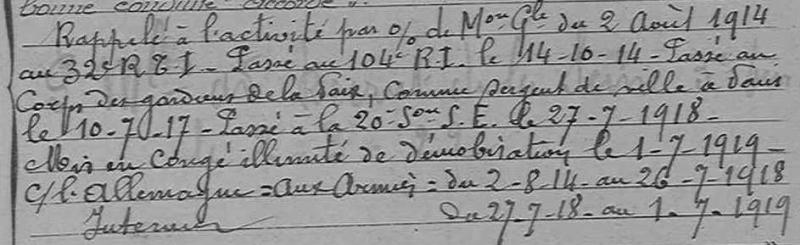 bonne conduite accordé.
Rappelé à l'activité par o/ de Mon Gle du 2 Août 1914
au 32e R.T.I. - Passé au 104e R.I. le 14-10-14 - Passé au
Corps des gardiens de la Paix, comme sergent de ville à Paris
le 10-7-17 - Passé à la 20e Son S.E. le 27-7-1918 -
Mis en congé illimité de démobisation le 1-7-1919 -
C/ l'Allemagne = aux Armées = du 2-8-14 - au 26-7-1918
Interieur du 27-7-18 - au 1-7-1919